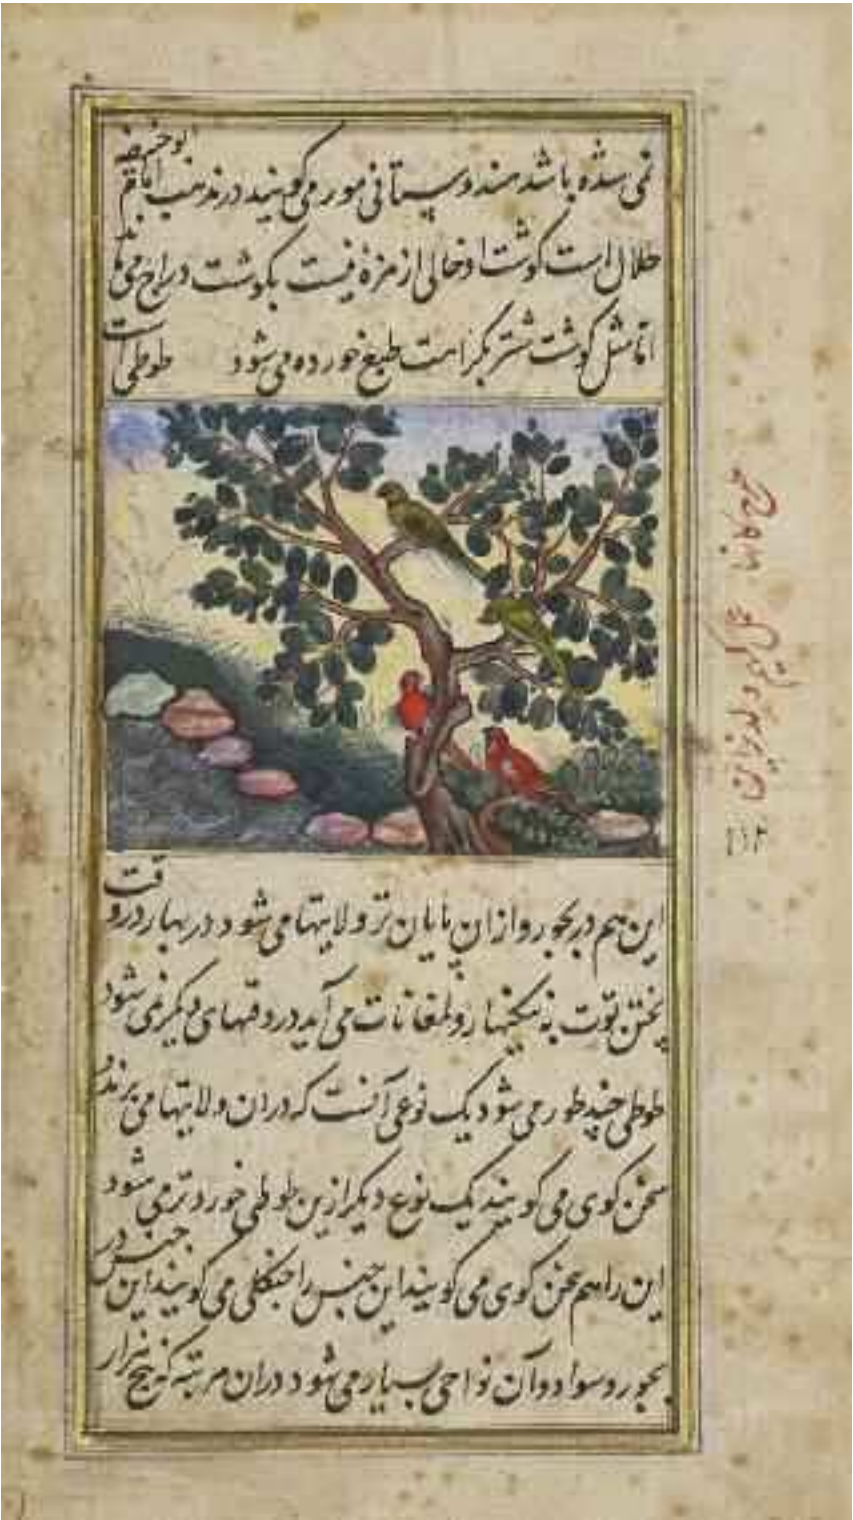 نمی شده باشد هندوستانی مور می کویند در مذهب امام ابوحنیفه
حلال است کوشت او خالی از مزهٔ نیست بکوشت دراج می ماند
اما مثل کوشت شتر بکراهت طبع خورده می شود طوطی است
این هم در بجور و ازان پایان تر ولایتها می شود در بهار در وقت
پختن توت به نیکنهار و لمغانات می آید در وقتهای دیکر نمی شود
طوطی چند طور می شود یک نوعی آنست که دران ولایتها می برند
سخن کوی می کویند یک نوع دیکر ازین طوطی خوردتر می شود
این را هم سخن کوی می کویند این جنس را جنکلی می کویند این جنس در
بجور و سواد و آن نواحی بسیار می شود دران مرتبه که پنج هزار
طرح کانها عمل